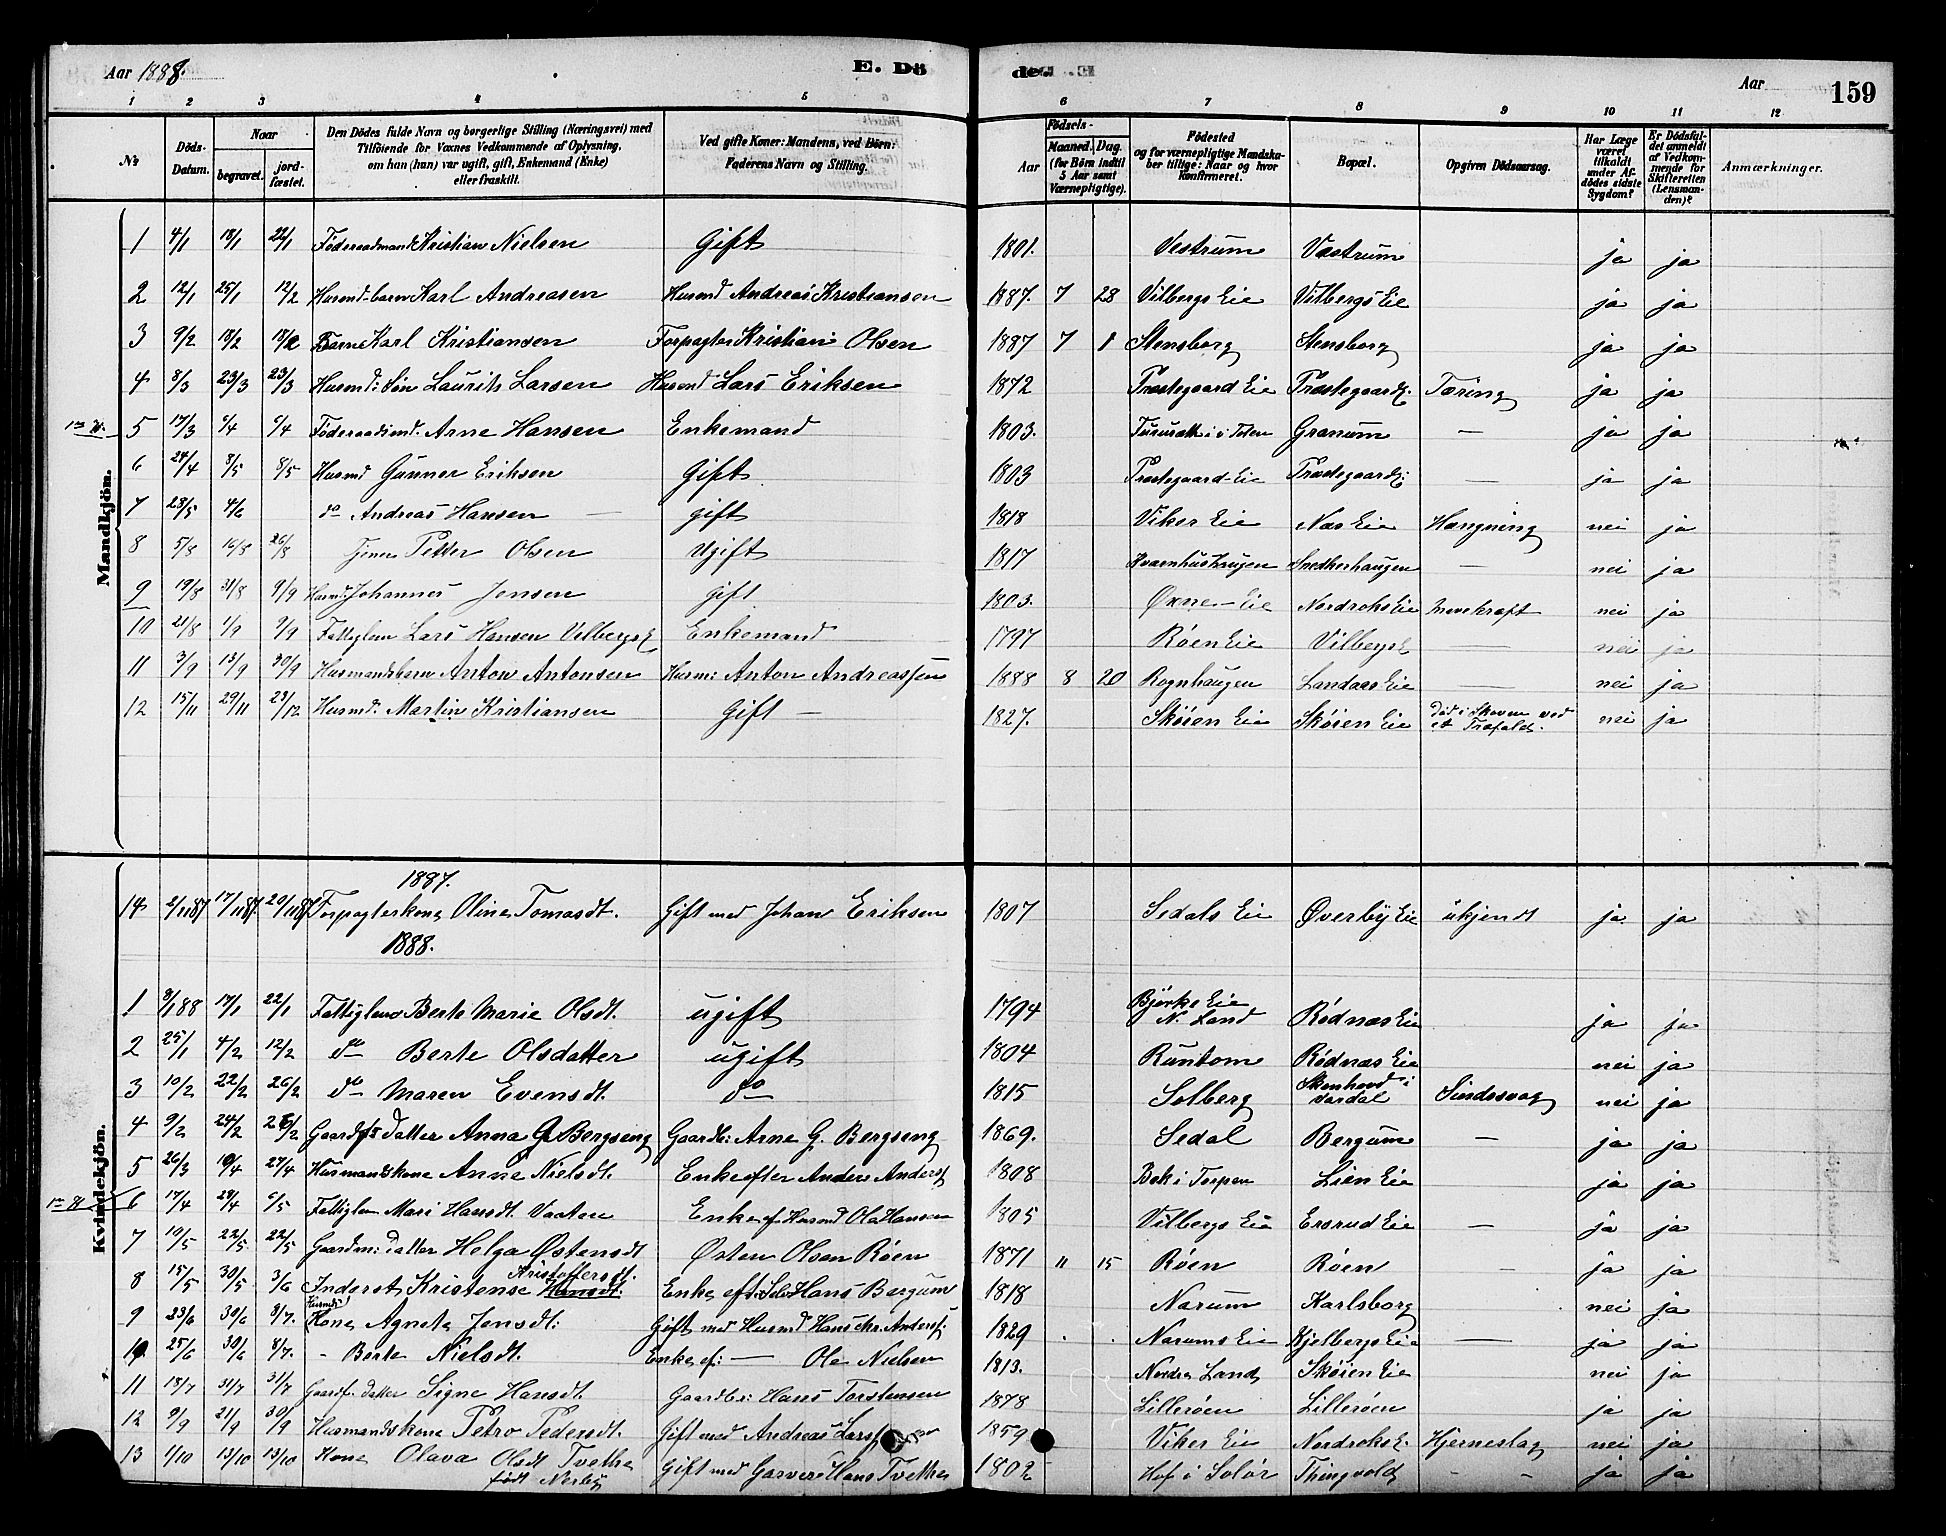 Aar 1888. E. Dö de. Aar 159
1 2 3 4 5 6 7 8 9 10 11 12
No Döds-Datum. Naar begravet. jord-fæstet. Den Dödes fulde Navn og borgerlige Stilling (Næringsvei) med Tilföiende for Voxnes Vedkommende af Oplysning, om han (hun) var ugift, gift, Enkemand (Enke) eller fraskilt. Ved gifte Koner: Mandens, ved Börn: Faderens Navn og Stilling. Födsels- Aar Maaned. Dag. (for Börn indtil 5 Aar samt Værnepligtige). Födested og for værnepligtige Mandskaber tillige: Naar og hvor konfirmeret. Bopæl. Opgiven Dödsaarsag. Har Læge været tilkaldt under Afdödes sidste Sygdom? Er Dödsfaldet anmeldt af Vedkommende for Skifteretten (Lensmanden)? Anmærkninger.
Mandkjön.
1 4/1 18/1 22/1 Föderaadmand Kristian Nielsen Gift 1801. Vestrum Vestrum ja ja
2 12/1 25/1 12/2 Husmd-barn Karl Andreasen Husmd Andreas Kristiansen 1887. 7 28 Vilbergs Eie Vilbergs Eie ja ja
3 9/2 18/2 18/2 Barne Karl Kristiansen Forpagter Kristian Olsen 1887 7 1 Stensborg Stensborg ja ja
4 8/3 23/3 23/3 Husmd: Søn Laurits Larsen Husmd Lars Eriksen 1872 Præstegaard Eie Præstegaard E. Tæring ja ja
5 17/3 6/4 6/4 Föderaadsmd. Arne Hansen Enkemand 1803. i Toten Granum — ja ja
6 24/4 8/5 8/5 Husmd Gunner Eriksen Gift 1803 Præstegaard-Eie Præstegaard E. — ja ja
7 28/5 4/6 do Andreas Hansen — gift 1818 Viker Eie Næs Eie Hængning nei ja
8 5/8 16/8 26/8 Tjener Petter Olsen Ugift 1817 Kværnhushaugen Snedkerhaugen — nei ja
9 19/8 31/8 9/9 Husmd: Johannes Jensen Gift 1803. Øxne-Eie Nordroks Eie nei ja
10 21/8 1/9 9/9 Fattiglem Lars Hansen Vilbergs E Enkemand 1797 Røen Eie Vilbergs E — nei ja
11 3/9 13/9 30/9 Husmandsbarn Anton Antonsen Husm: Anton Andreassen 1888 8 20 Rognhaugen Landaas Eie — nei ja
12 15/11 29/11 29/12 Husmd. Martin Kristiansen Gift — 1827. Skøien Eie Skøien Eie Død i Skoven ved et Træfald. nei ja
Kvindekjön.
1887.
14 2/11 87 17/11 87. 20/11 87 Forpagterkone Oline Tomasdt. Gift med Johan Eriksen 1807 Sedals Eie Øverby Eie ukjendt ja ja
1888.
1 8/1 88 17/1 22/1 Fattiglem Berte Marie Olsdt. ugift 1794 Bjørke Eie N. Land Rødnæs Eie ja ja
2 25/1 4/2 12/2 do Berte Olsdatter ugift 1804 Runtom Rødnæs Eie nei ja
3 10/2 22/2 26/2 do Maren Evensdt. do 1815 Solberg i Vardal Sindssvag nei ja
4 9/2 24/2 26/2 Gaardbrs datter Anna G. Bergseng Gaardbr: Arne G. Bergseng 1869. Sedal Bergum — ja ja
5 26/3 10/4 27/4 Husmandskone Anne Nielsdt. Enke efter Anders Anders 1808 Bek i Torpen Lien Eie ja ja
6 17/4 29/4 6/5 Fattiglem Mari Hansdt. Vaaten Enke ef Husmd Ole Hansen 1805 Vilbergs Eie Ersrud Eie — ja ja
7 10/5 22/5 22/5 Gaardm: datter Helga Østensdt Østen Olsen Røen 1871 11 15 Røen Røen — ja ja
8 15/5 30/5 3/6 Inderst Kristense Hansdt. Kristoffersdt. Enke eft. Selv Hans Bergum 1818 Narum Karlsborg nei ja
9 23/6 30/6 8/7. Husmds Kone Agnete Jensdt: Gift med Husmd Hans Chr. Anders 1829 . . Narums Eie Kjelbergs Eie — ja ja
10 25/6 30/6 8/7. - Berte Nielsdt. Enke ef: — Ole Nielsen 1813. Nordre Land Skøien Eie nei ja
11 18/7 31/7 31/7 Gaardf. datter Signe Hansdt. Gaardbr: Hans Torstensen 1878 Lillerøen Lillerøen ja ja
12 9/9 21/9 30/9 Husmandskone Petro Pedersdt. Gift med Andreas Lars 1859 Viker Eie Nordroks E. Hjerneslag nei ja
13 1/10 13/10 13/10 Kone Olava Olsdt Tvethe født Nerby Gift med Garver Hans Tvethe 1802 Hof i Solør Thingvold - - ja ja